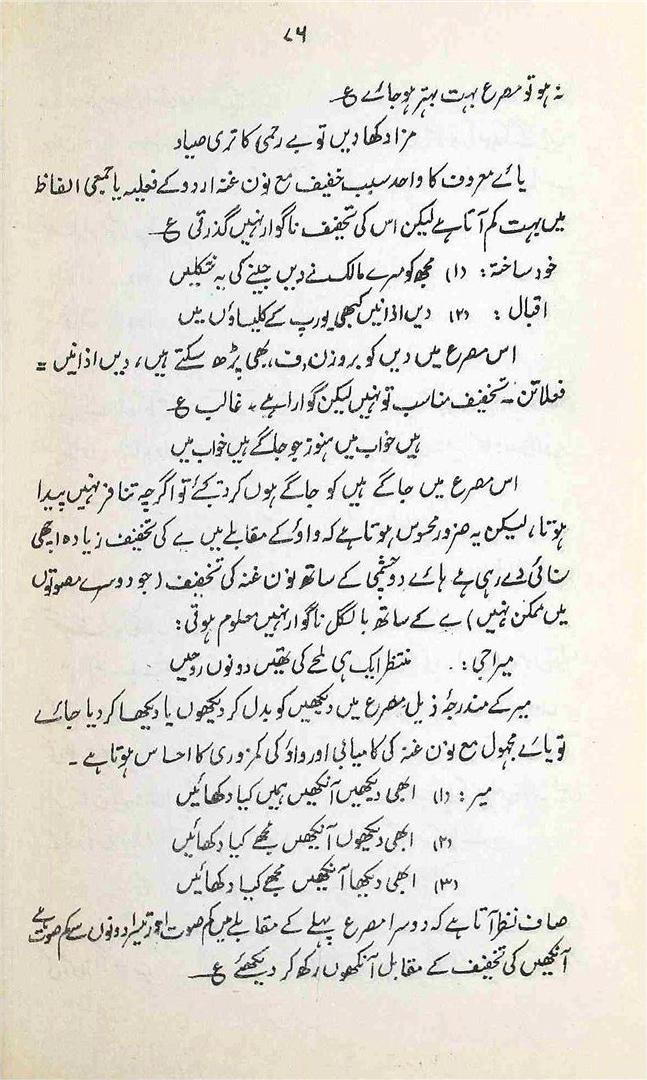 ۷۶
نہ ہو تو مصرع بہت بہتر ہو جائے ع
مزا دکھا دیں تو بے رحمی کا تری صیاد
یائے معروف کا واحد سبب خفیف مع نون غنہ اردو کے فعلیہ یا جمعی الفاظ
میں بہت کم آتا ہے لیکن اس کی تخفیف ناگوار نہیں گذرتی ع
خود ساختہ : (۱) مجھ کو مرے مالک نے دیں جینے کی یہ شکلیں
اقبال : (۲) دیں اذانیں کبھی یورپ کے کلیساؤں میں
اس مصرع میں دیں کو بروزن ف، بھی پڑھ سکتے ہیں، دیں اذانیں =
فعلاتن ۔ تخفیف مناسب تو نہیں لیکن گوارا ہے ۔ غالب ع
ہیں خواب میں ہنوز جو جاگے ہیں خواب میں
اس مصرع میں جاگے ہیں کو جاگے ہوں کر دیجئے تو اگرچہ تنافر نہیں پیدا
ہوتا، لیکن یہ ضرور محسوس ہوتا ہے کہ واؤ کے مقابلے میں یے کی تخفیف زیادہ اچھی
سنائی دے رہی ہے ہائے دو چشمی کے ساتھ نون غنہ کی تخفیف (جو دوسرے مصوتوں
میں ممکن نہیں) یے کے ساتھ بالکل ناگوار نہیں معلوم ہوتی :
میراجی : منتظر ایک ہی لمحے کی تھیں دونوں روحیں
میر کے مندرجۂ ذیل مصرع میں دیکھیں کو بدل کر دیکھوں یا دیکھا کر دیا جائے
تو یائے مجہول مع نون غنہ کی کامیابی اور واؤ کی کمزوری کا احساس ہوتا ہے ۔
میر : (۱) ابھی دیکھیں آنکھیں ہمیں کیا دکھائیں
(۲) ابھی دیکھوں آنکھیں مجھے کیا دکھائیں
(۳) ابھی دیکھا آنکھیں مجھے کیا دکھائیں
صاف نظر آتا ہے کہ دوسرا مصرع پہلے کے مقابلے میں کم صوت اور تیسرا دونوں سے کم صوت ہے
آنکھیں کی تخفیف کے مقابل آنکھوں رکھ کر دیکھئے ع